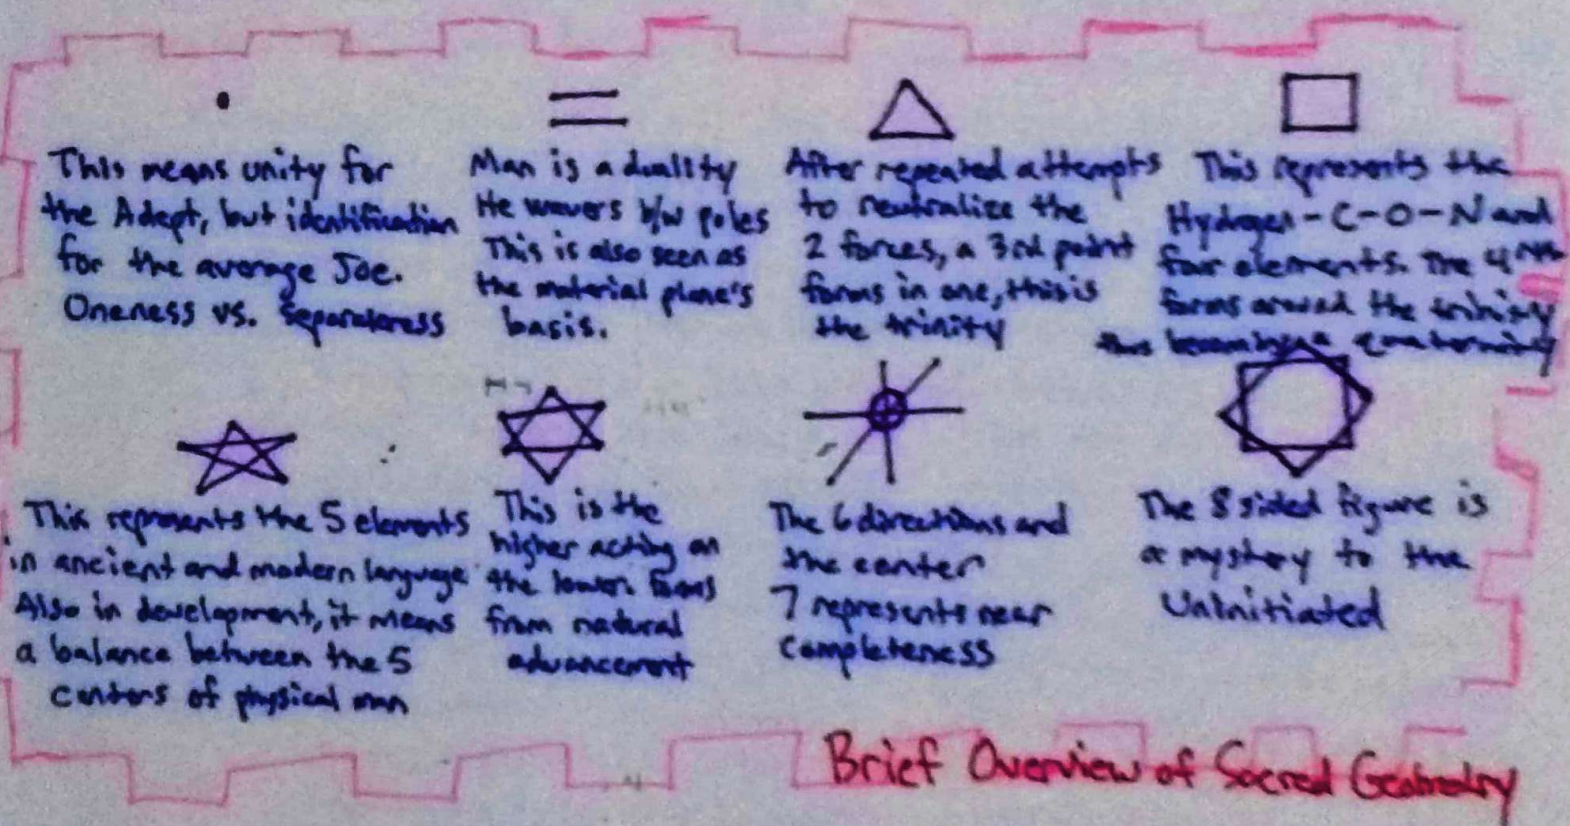 This means unity for
the Adept, but identification
for the average Joe.
Oneness vs. separateness
Man is a duality
He wavers b/w poles
This is also seen as
the material plane's
basis.
After repeated attempts
to neutralize the
2 forces, a 3rd point
forms in one, this is
the trinity
This represents the
Hydrogen-C-O-N and
four elements. The 4th
forms around the trinity
thus becoming a quaternity
This represents the 5 elements
in ancient and modern language
Also in development, it means
a balance between the 5
centers of physical man
This is the
higher acting on
the lower. Forms
from natural
advancement
The 6 directions and
the center
7 represents near
completeness
The 8 sided figure is
a mystery to the
Uninitiated
Brief Overview of Sacred Geometry